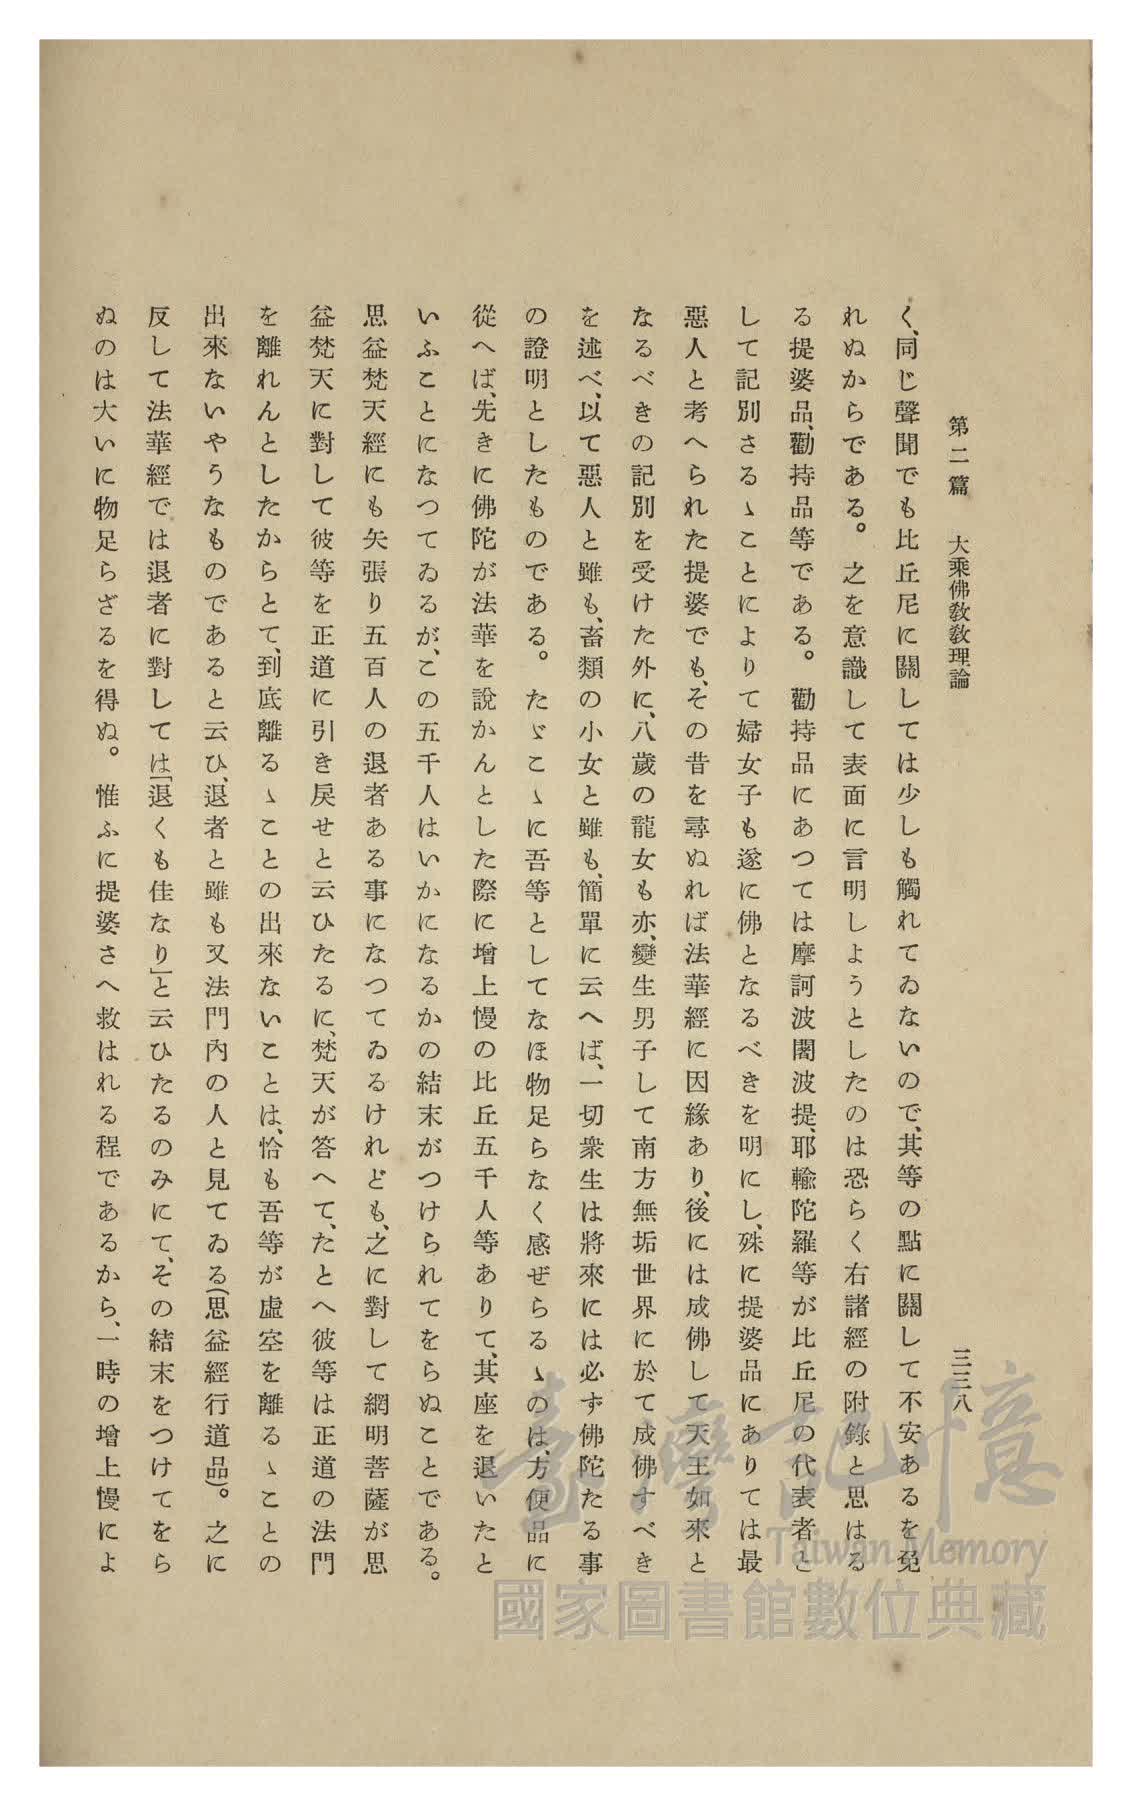 第二篇　大乘佛敎敎理論
三三八
く、同じ聲聞でも比丘尼に關しては少しも觸れてゐないので、其等の點に關して不安あるを免
れぬからである。之を意識して表面に言明しようとしたのは恐らく右諸經の附錄と思はる
る提婆品、勸持品等である。勸持品にあつては摩訶波闍波提、耶輸陀羅等が比丘尼の代表者と
して記別さるゝことによりて婦女子も遂に佛となるべきを明にし、殊に提婆品にありては最
惡人と考へられた提婆でも、その昔を尋ぬれば法華經に因緣あり、後には成佛して天王如來と
なるべきの記別を受けた外に、八歲の龍女も亦、變生男子して南方無垢世界に於て成佛すべき
を述べ、以て惡人と雖も、畜類の小女と雖も、簡單に云へば、一切衆生は將來には必ず佛陀たる事
の證明としたものである。たゞこゝに吾等としてなほ物足らなく感ぜらるゝのは、方便品に
從へば、先きに佛陀が法華を說かんとした際に增上慢の比丘五千人等ありて、其座を退いたと
いふことになつてゐるが、この五千人はいかになるかの結末がつけられてをらぬことである。
思益梵天經にも矢張り五百人の退者ある事になつてゐるけれども、之に對して網明菩薩が思
益梵天に對して彼等を正道に引き戾せと云ひたるに、梵天が答へて、たとへ彼等は正道の法門
を離れんとしたからとて、到底離るゝことの出來ないことは、恰も吾等が虛空を離るゝことの
出來ないやうなものであると云ひ、退者と雖も又法門內の人と見てゐる(思益經行道品)。之に
反して法華經では退者に對しては「退くも佳なり」と云ひたるのみにて、その結末をつけてをら
ぬのは大いに物足らざるを得ぬ。惟ふに提婆さへ救はれる程であるから、一時の增上慢によ
臺灣記憶
Taiwan Memory
國家圖書館數位典藏